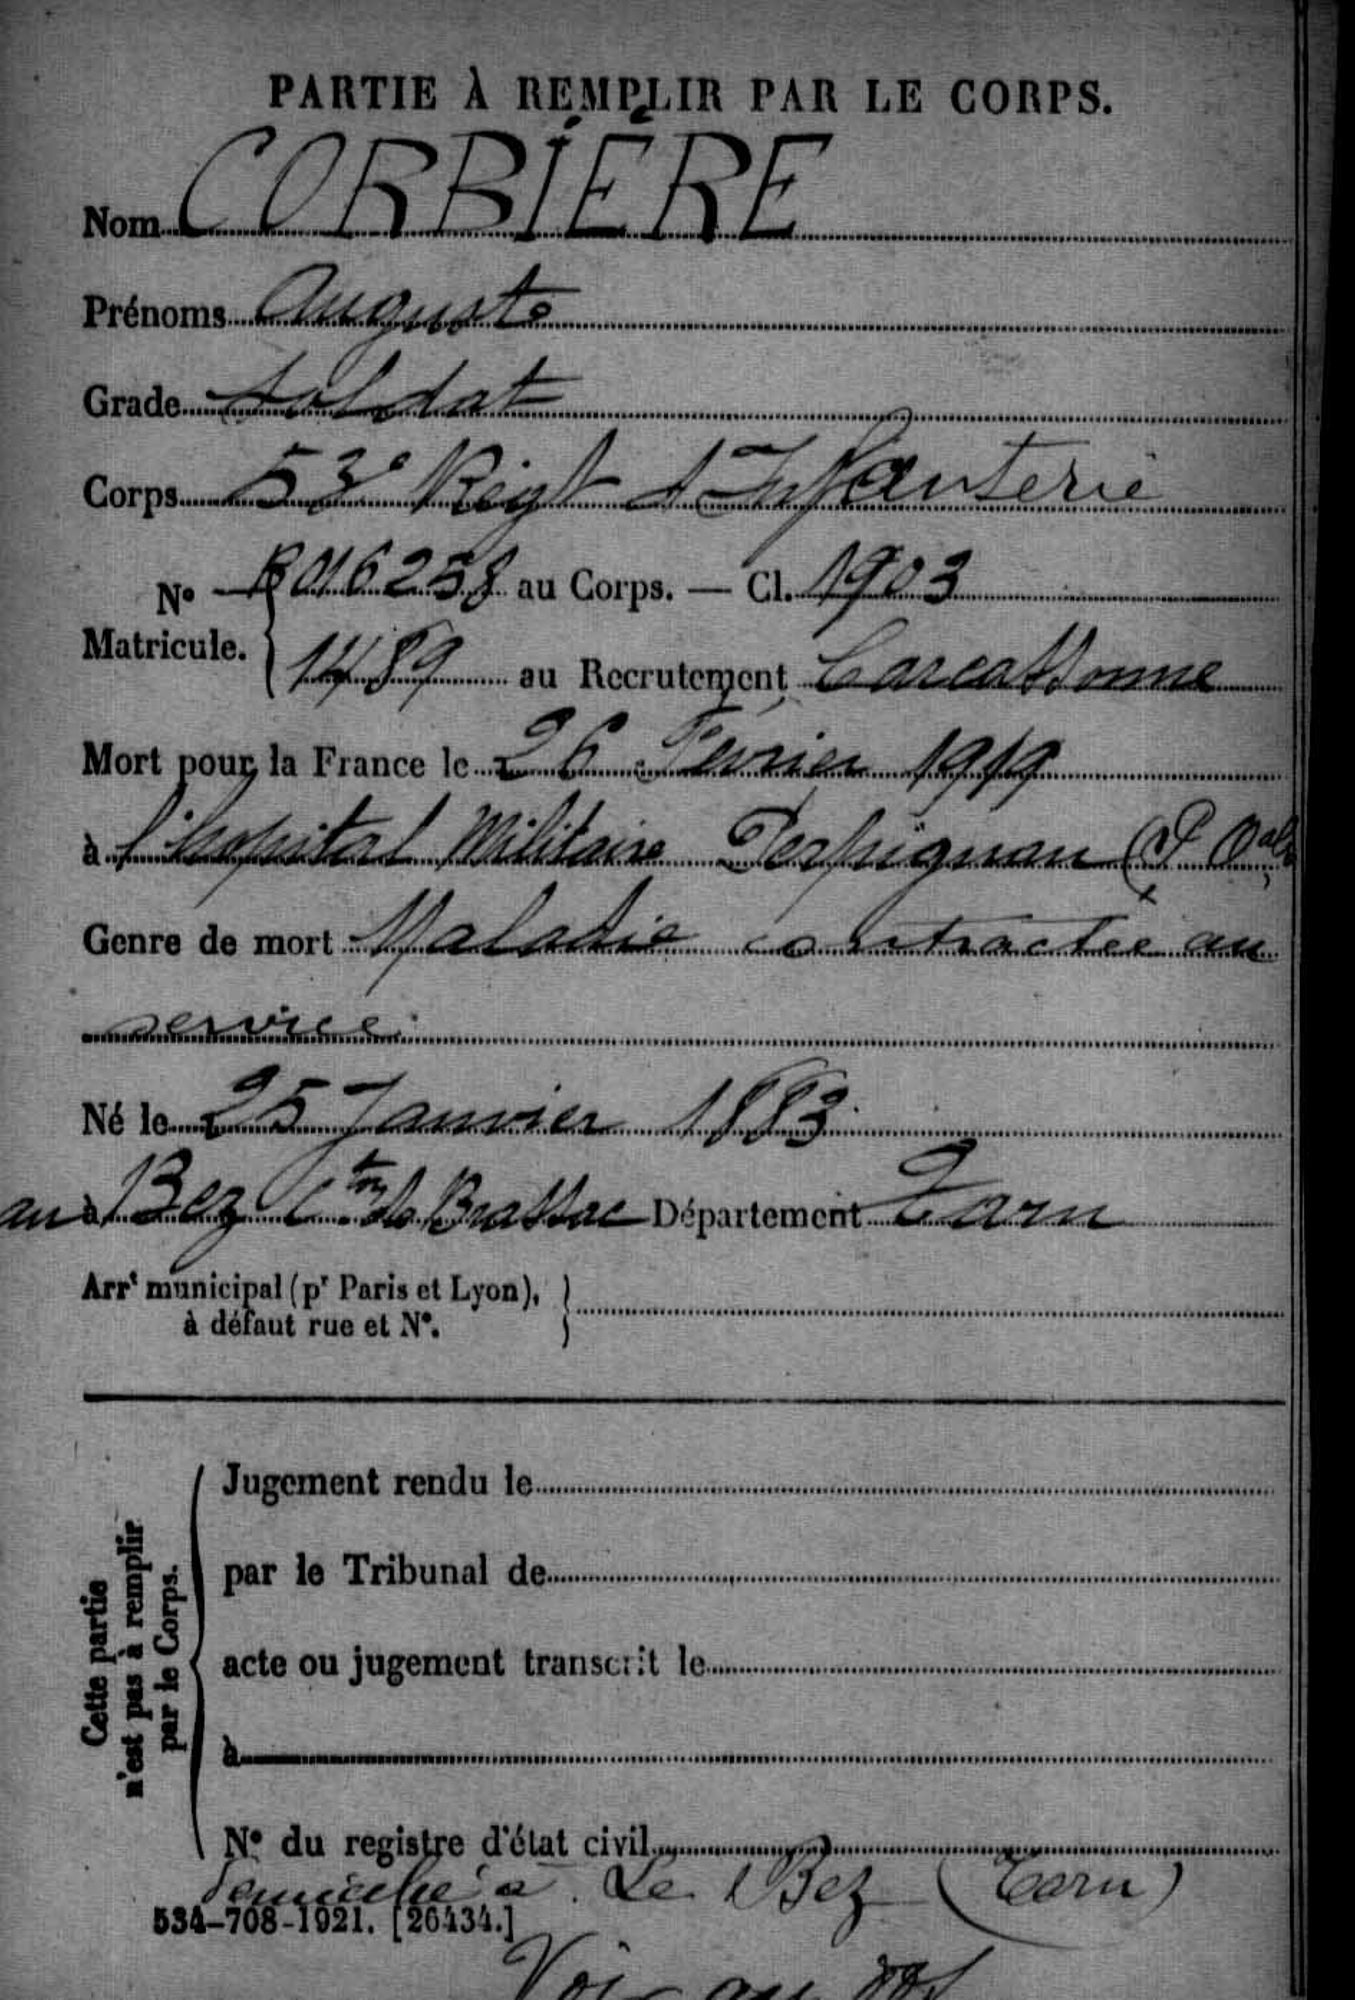 PARTIE À REMPLIR PAR LE CORPS.
Nom CORBIÈRE
Prénoms Auguste
Grade soldat
Corps 53e Régt d'Infanterie
No Matricule. { R016238 au Corps. — Cl. 1903
1489 au Recrutement Carcassonne
Mort pour la France le 26 Février 1919
à l'hopital Militaire Perpignan (P. Oales
Genre de mort Maladie contractée au
service
Né le 25 Janvier 1883
au à Bez Cton de Brassac Département Tarn
Arrt municipal (pr Paris et Lyon), }
à défaut rue et No.
Cette partie
n'est pas à remplir
par le Corps.
Jugement rendu le
par le Tribunal de
acte ou jugement transcrit le
à
No du registre d'état civil
domicilié à Le Bez (Tarn)
534-708-1921. [26434.]
Voir au dos